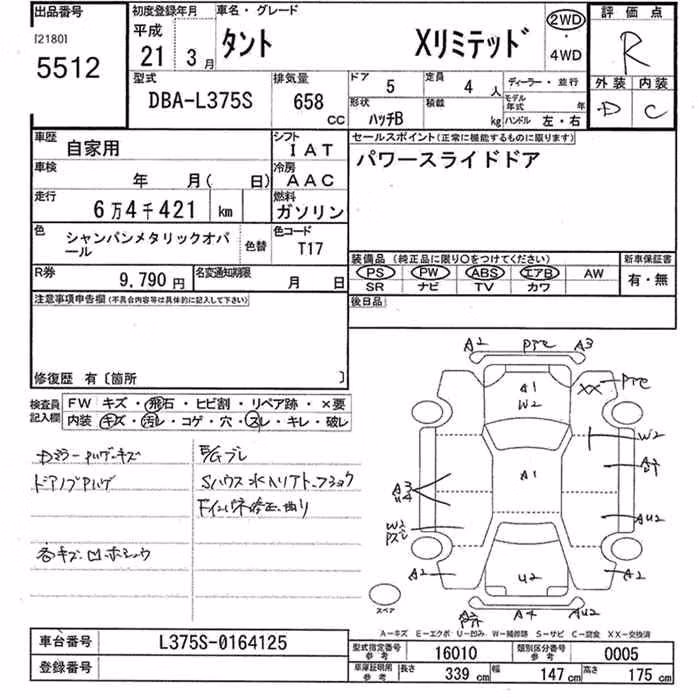 出品番号
[2180]
5512
初度登録年月
平成
21 3月
車名・グレード
タント Xリミテッド
2WD
・
4WD
評価点
R
外装 内装
D C
型式
DBA-L375S
排気量
658
CC
ドア 5
定員 4 人
ディーラー・並行
形状 ハッチB
積載 kg
モデル年式 年
ハンドル 左・右
車歴
自家用
シフト
IAT
セールスポイント(正常に機能するものに限ります)
パワースライドドア
車検
年 月( 日)
冷房
AAC
走行
6万4千421 km
燃料
ガソリン
色
シャンパンメタリックオパール
色替
色コード
T17
装備品(純正品に限り○をつけてください)
新車保証書
PS PW ABS エアB AW
SR ナビ TV カワ
有・無
R券
9,790 円
名変通知期限
月 日
後日品
注意事項申告欄(不具合内容等は具体的に記入して下さい)
修復歴 有〔箇所 〕
検査員記入欄
FW キズ・飛石・ヒビ割・リペア跡・×要
内装 キズ・汚レ・コゲ・穴・スレ・キレ・破レ
E/Gブレ
ドアノブ
各キズ凹ホシュウ
A2 A3
A1
W2
XX
W2
A1
A3
U4
W2
AU2
A2 A2
U2
A4 AU2
スペア
A-キズ E-エクボ U-凹み W-補修跡 S-サビ C-腐食 XX-交換済
車台番号
L375S-0164125
登録番号
型式指定番号 参考
16010
類別区分番号 参考
0005
車庫証明用 参考
長さ 339 cm
幅 147 cm
高さ 175 cm